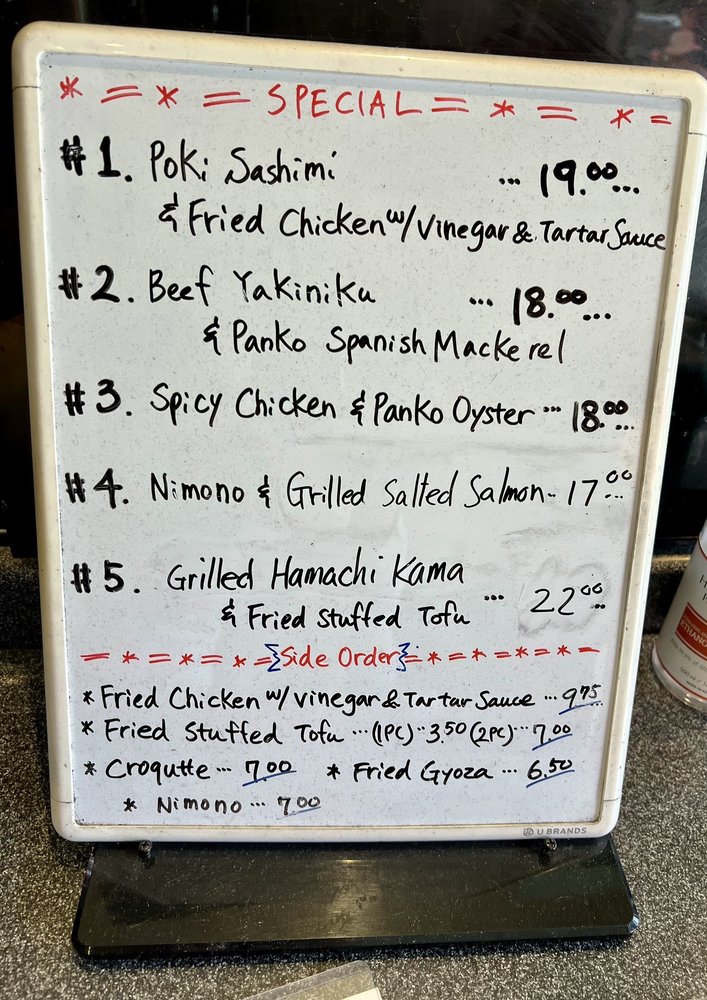 * = * = SPECIAL = * = * =
#1. Poki Sashimi ... 19.00...
& Fried Chicken w/ Vinegar & Tartar Sauce
#2. Beef Yakiniku ... 18.00...
& Panko Spanish Mackerel
#3. Spicy Chicken & Panko Oyster ... 18.00...
#4. Nimono & Grilled Salted Salmon - 17.00...
#5. Grilled Hamachi Kama
& Fried Stuffed Tofu ... 22.00...
= * = * = * = * = {Side Order} = * = * = * = * -
* Fried Chicken w/ Vinegar & Tartar Sauce ... 9.75
* Fried Stuffed Tofu ... (1PC) .. 3.50 (2PC) ... 7.00
* Croqutte ... 7.00 * Fried Gyoza ... 6.50
* Nimono ... 7.00
U BRANDS